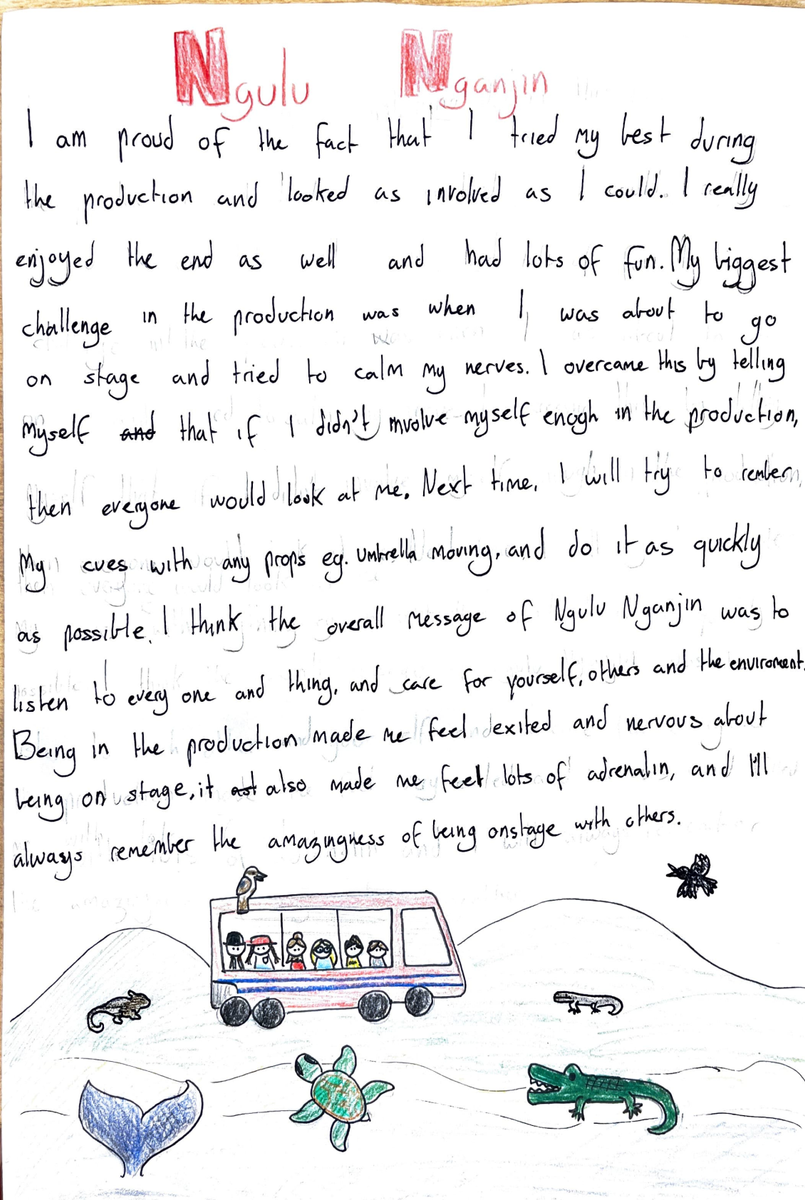 Ngulu Nganjin
I am proud of the fact that I tried my best during
the production and looked as involved as I could. I really
enjoyed the end as well and had lots of fun. My biggest
challenge in the production was when I was about to go
on stage and tried to calm my nerves. I overcame this by telling
myself and that if I didn't involve myself enogh in the production,
then everyone would look at me. Next time, I will try to rember
my cues with any props eg. umbrella moving, and do it as quickly
as possible. I think the overall message of Ngulu Nganjin was to
listen to every one and thing, and care for yourself, others and the enviroment.
Being in the production made me feel exited and nervous about
being on stage, it also made me feel lots of adrenalin, and I'll
always remember the amazingness of being onstage with others.